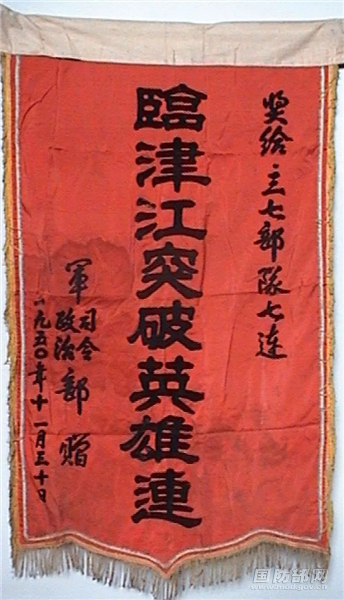 奖给三七部隊七连
臨津江突破英雄連
軍 司令
政治 部 赠
一九五〇年十一月三十日
国防部网
www.mod.gov.cn